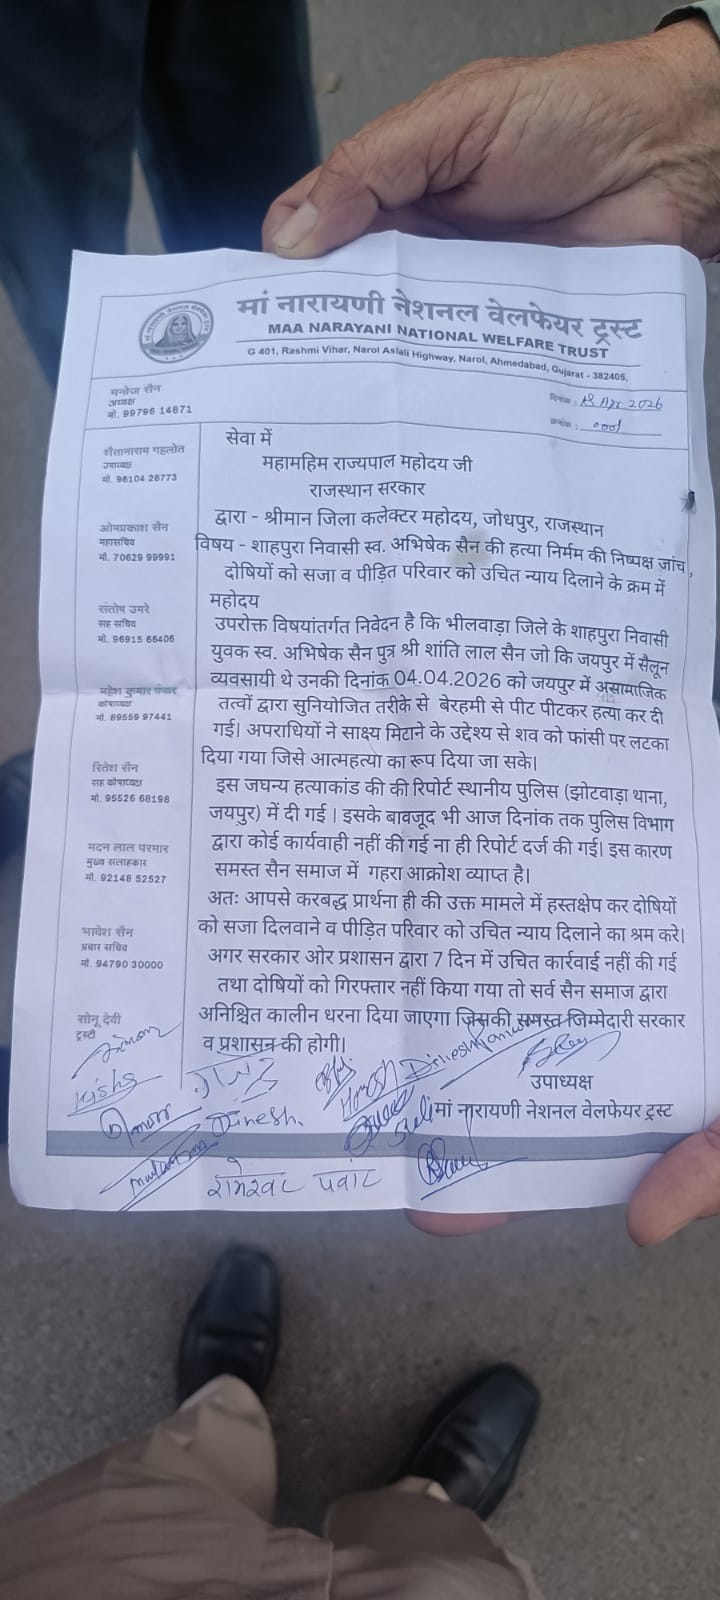 मां नारायणी नेशनल वेलफेयर ट्रस्ट
MAA NARAYANI NATIONAL WELFARE TRUST
G 401, Rashmi Vihar, Narol Aslali Highway, Narol, Ahmedabad, Gujarat - 382405.
दिनांक : 18 Apr 2026
क्रमांक : 0001
मनोज सैन
अध्यक्ष
मो. 99796 14871
शैतानाराम गहलोत
उपाध्यक्ष
मो. 96104 26773
ओमप्रकाश सैन
महासचिव
मो. 70629 99991
संतोष उमरे
सह सचिव
मो. 96915 66406
महेश कुमार पंवार
कोषाध्यक्ष
मो. 89559 97441
रितेश सैन
सह कोषाध्यक्ष
मो. 95526 68198
मदन लाल परमार
मुख्य सलाहकार
मो. 92148 52527
भावेश सैन
प्रचार सचिव
मो. 94790 30000
सोनू देवी
ट्रस्टी
सेवा में
महामहिम राज्यपाल महोदय जी
राजस्थान सरकार
द्वारा - श्रीमान जिला कलेक्टर महोदय, जोधपुर, राजस्थान
विषय - शाहपुरा निवासी स्व. अभिषेक सैन की हत्या निर्मम की निष्पक्ष जांच ,
दोषियों को सजा व पीड़ित परिवार को उचित न्याय दिलाने के क्रम में
महोदय
उपरोक्त विषयांतर्गत निवेदन है कि भीलवाड़ा जिले के शाहपुरा निवासी
युवक स्व. अभिषेक सैन पुत्र श्री शांति लाल सैन जो कि जयपुर में सैलून
व्यवसायी थे उनकी दिनांक 04.04.2026 को जयपुर में असामाजिक
तत्वों द्वारा सुनियोजित तरीके से बेरहमी से पीट पीटकर हत्या कर दी
गई। अपराधियों ने साक्ष्य मिटाने के उद्देश्य से शव को फांसी पर लटका
दिया गया जिसे आत्महत्या का रूप दिया जा सके।
इस जघन्य हत्याकांड की की रिपोर्ट स्थानीय पुलिस (झोटवाड़ा थाना,
जयपुर) में दी गई | इसके बावजूद भी आज दिनांक तक पुलिस विभाग
द्वारा कोई कार्यवाही नहीं की गई ना ही रिपोर्ट दर्ज की गई। इस कारण
समस्त सैन समाज में गहरा आक्रोश व्याप्त है।
अतः आपसे करबद्ध प्रार्थना ही की उक्त मामले में हस्तक्षेप कर दोषियों
को सजा दिलवाने व पीड़ित परिवार को उचित न्याय दिलाने का श्रम करे।
अगर सरकार ओर प्रशासन द्वारा 7 दिन में उचित कार्रवाई नहीं की गई
तथा दोषियों को गिरफ्तार नहीं किया गया तो सर्व सैन समाज द्वारा
अनिश्चित कालीन धरना दिया जाएगा जिसकी समस्त जिम्मेदारी सरकार
व प्रशासन की होगी।
उपाध्यक्ष
मां नारायणी नेशनल वेलफेयर ट्रस्ट
Dinesh